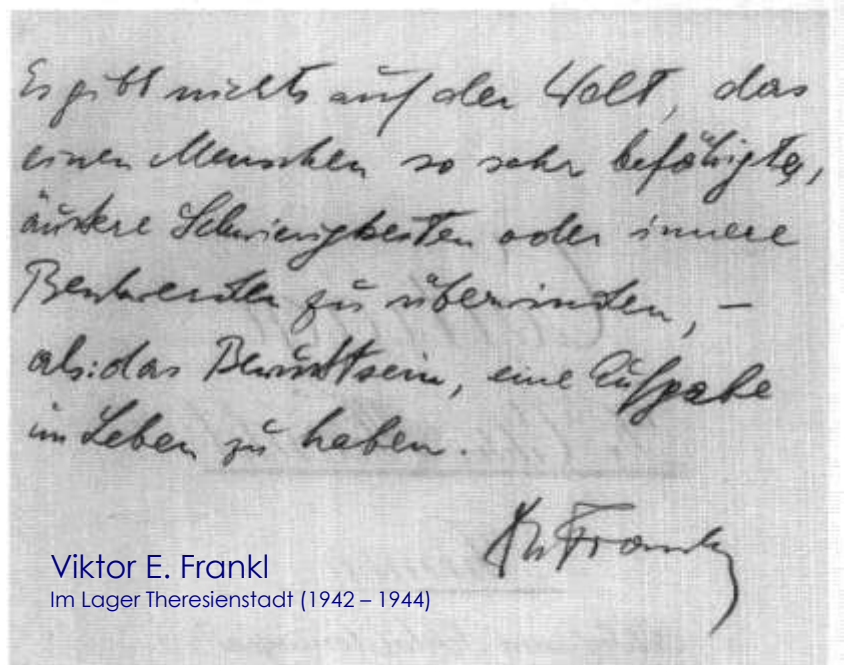 Es gibt nichts auf der Welt, das
einen Menschen so sehr befähigte,
äußere Schwierigkeiten oder innere
Beschwerden zu überwinden, –
als: das Bewußtsein, eine Aufgabe
im Leben zu haben.
Frankl
Viktor E. Frankl
Im Lager Theresienstadt (1942 – 1944)